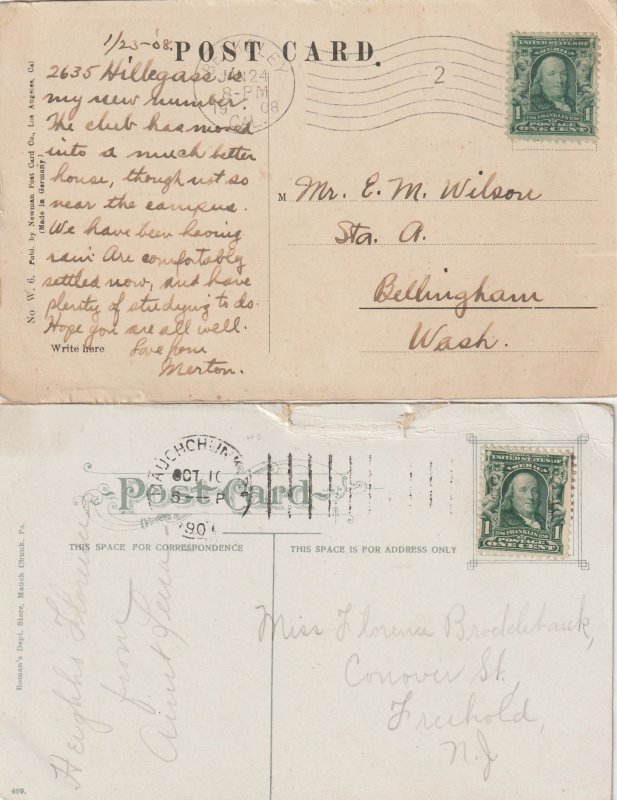 1/23-'08.
POST CARD.
BERKELEY
JAN 24
8-PM
1908
CAL.
2
UNITED STATES OF
AMERICA
1 1
FRANKLIN
POSTAGE
ONE CENT
No W. 6. Publ. by Newman Post Card Co., Los Angeles, Cal
(Made in Germany)
2635 Hillegass is
my new number.
The club has moved
into a much better
house, though not so
near the campus.
We have been having
rain. Are comfortably
settled now, and have
plenty of studying to do.
Hope you are all well.
Write here Love from
Merton.
M Mr. E. M. Wilson
Sta. A.
Bellingham
Wash.
MAUCH CHUNK
OCT 10
5- P
190
Post Card
UNITED STATES OF
AMERICA
1 1
FRANKLIN
POSTAGE
ONE CENT
THIS SPACE FOR CORRESPONDENCE
THIS SPACE IS FOR ADDRESS ONLY
Roman's Dept. Store, Mauch Chunk, Pa.
Florence
from
Aunt
Miss Florence Brocklebank,
Conover St,
Freehold,
N.J
409.